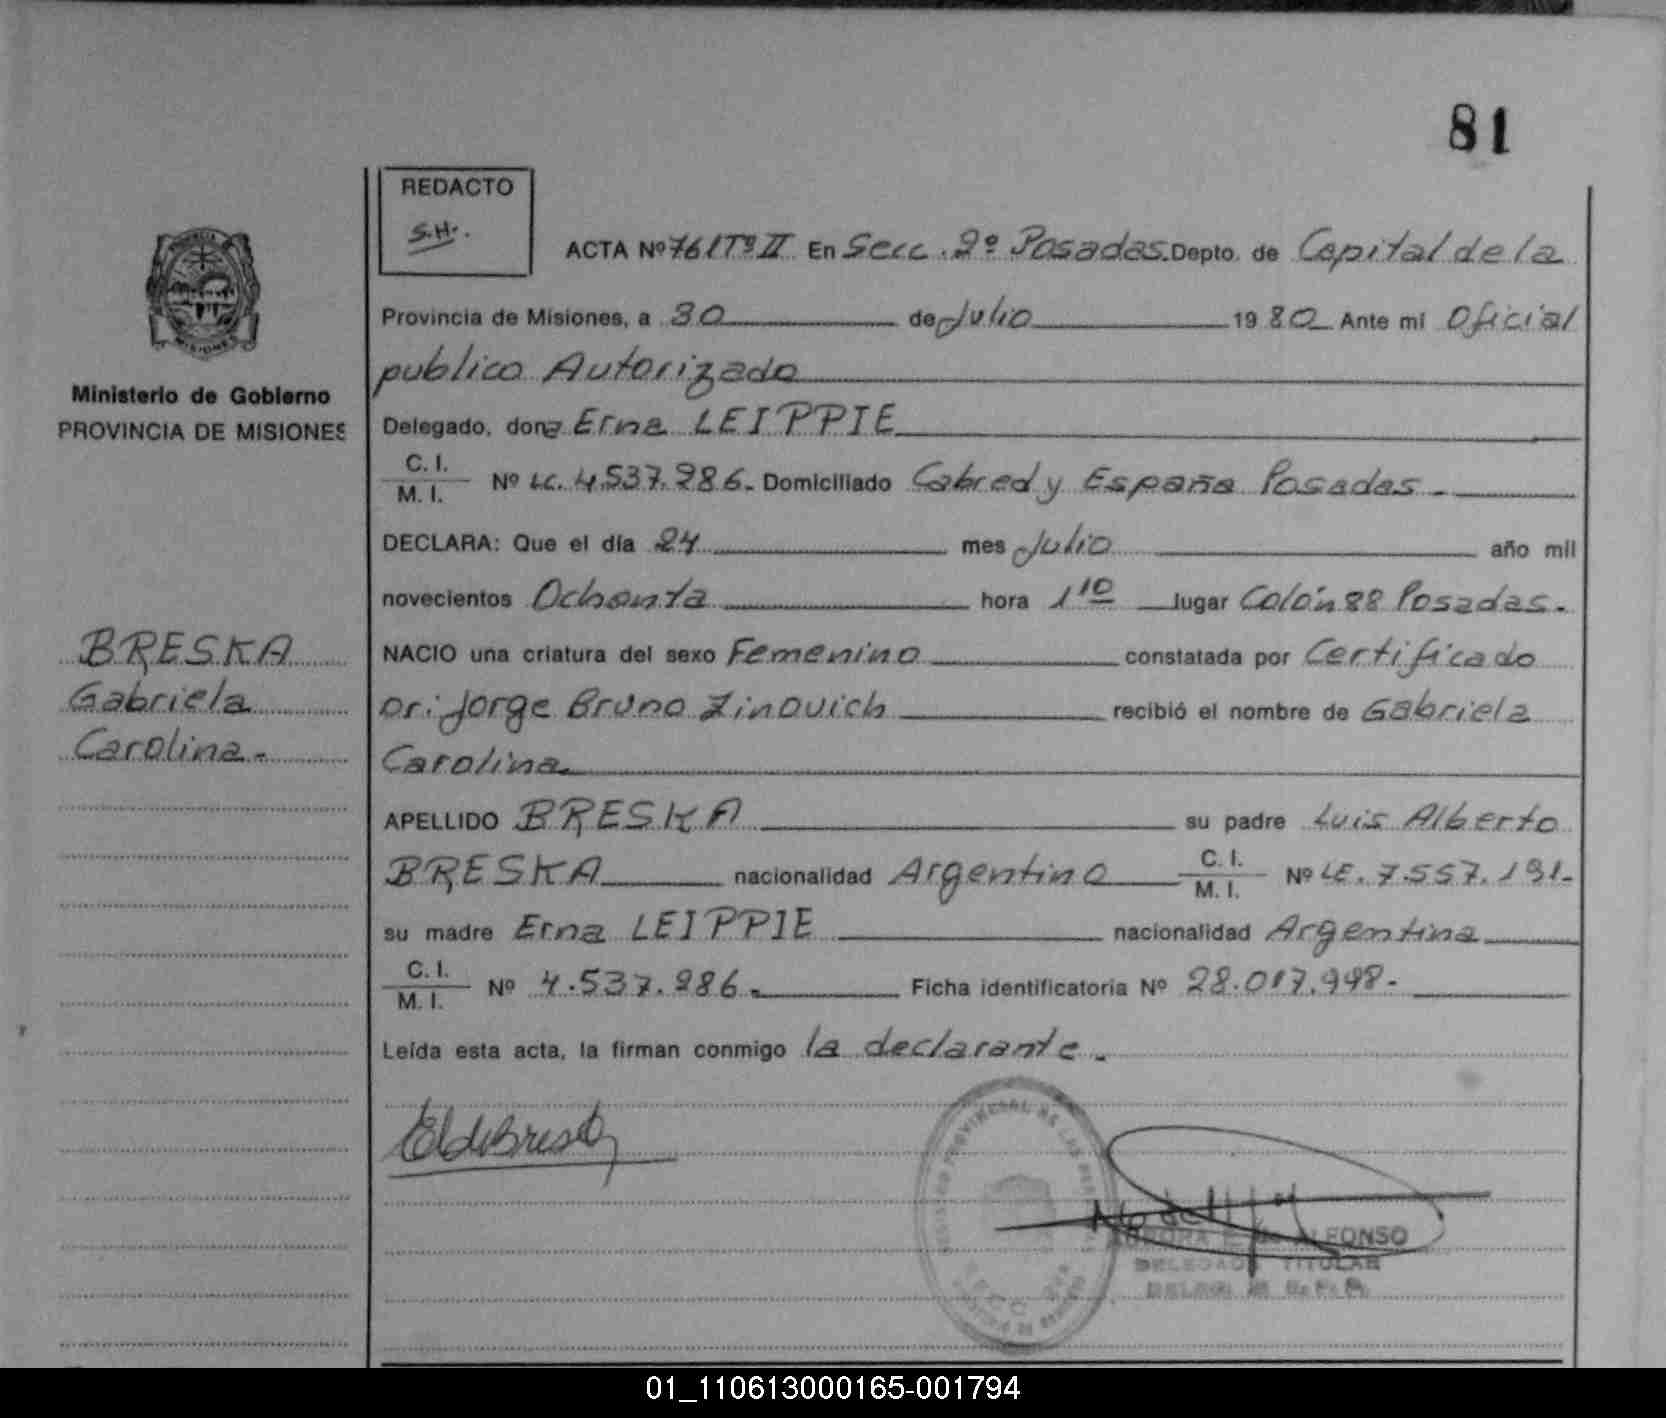 81
REDACTO
S.H.
ACTA Nº 761 Tº II En Secc. 2º Posadas. Depto. de Capital de la
Provincia de Misiones, a 30 de Julio 1980 Ante mi Oficial
publico Autorizado
Ministerio de Gobierno
PROVINCIA DE MISIONES
Delegado, dona Erna LEIPPIE
C. I.
M. I.
Nº LC. 4.537.286. Domiciliado Cabred y España Posadas.
DECLARA: Que el día 24 mes Julio año mil
novecientos Ochenta hora 1 10 lugar Colón 88 Posadas.
BRESKA
Gabriela
Carolina.
NACIO una criatura del sexo Femenino constatada por Certificado
Dr: Jorge Bruno Zinovich recibió el nombre de Gabriela
Carolina
APELLIDO BRESKA su padre Luis Alberto
BRESKA nacionalidad Argentino C. I. M. I. Nº LE. 7.557.191.
su madre Erna LEIPPIE nacionalidad Argentina
C. I.
M. I.
Nº 4.537.286. Ficha identificatoria Nº 28.017.998.
Leída esta acta, la firman conmigo la declarante.
ALFONSO
TITULAR
01_110613000165-001794